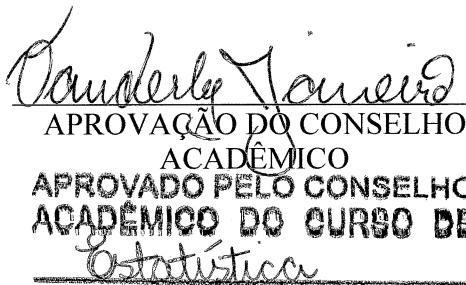 Vanderly Janeiro
APROVAÇÃO DO CONSELHO
ACADÊMICO
APROVADO PELO CONSELHO
ACADÊMICO DO CURSO DE
Estatística